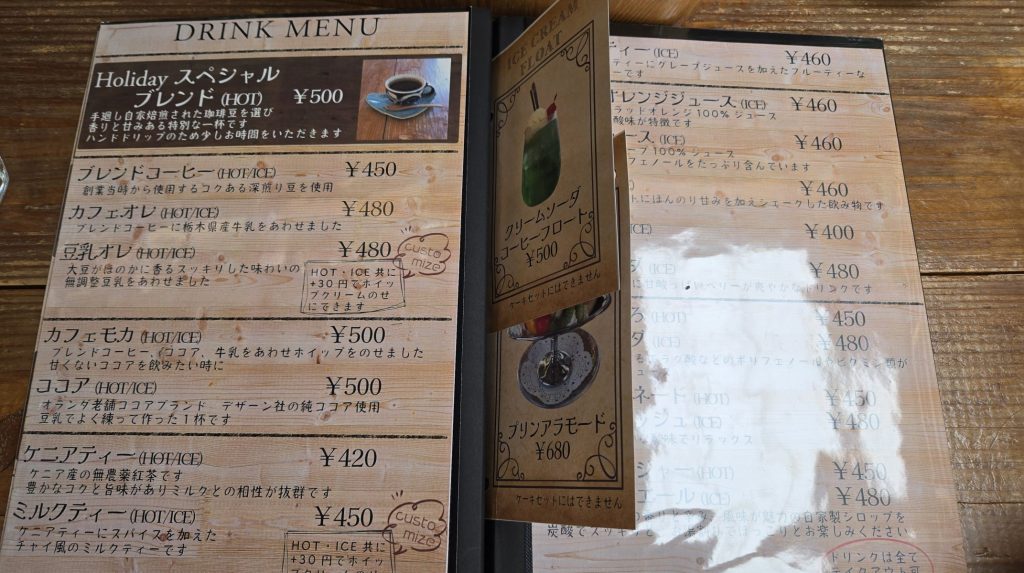 DRINK MENU
Holiday スペシャル
ブレンド (HOT) ¥500
手廻し自家焙煎された珈琲豆を選び
香りと甘みある特別な一杯です
ハンドドリップのため少しお時間をいただきます
ブレンドコーヒー (HOT/ICE) ¥450
創業当時から使用するコクある深煎り豆を使用
カフェオレ (HOT/ICE) ¥480
ブレンドコーヒーに栃木県産牛乳をあわせました
豆乳オレ (HOT/ICE) ¥480
大豆がほのかに香るスッキリした味わいの
無調整豆乳をあわせました
customize
HOT・ICE 共に
+30 円でホイッ
プクリームのせ
にできます
カフェモカ (HOT/ICE) ¥500
ブレンドコーヒー、ココア、牛乳をあわせホイップをのせました
甘くないココアを飲みたい時に
ココア (HOT/ICE) ¥500
オランダ老舗ココアブランド デザーン社の純ココア使用
豆乳でよく練って作った1杯です
ケニアティー (HOT/ICE) ¥420
ケニア産の無農薬紅茶です
豊かなコクと旨味がありミルクとの相性が抜群です
ミルクティー (HOT/ICE) ¥450
ケニアティーにスパイスを加えた
チャイ風のミルクティーです
customize
HOT・ICE 共に
+30 円でホイッ
プクリームのせ
ICE CREAM
FLOAT
クリームソーダ
コーヒーフロート
¥500
ケーキセットにはできません
プリンアラモード
¥680
ケーキセットにはできません
ティー (ICE) ¥460
ティーにグレープジュースを加えたフルーティーな
ーです
オレンジジュース (ICE) ¥460
ラッドオレンジ 100% ジュース
酸味が特徴です
ース (ICE) ¥460
ープ 100% ジュース
フェノールをたっぷり含んでいます
¥460
トにほんのり甘みを加えシェークした飲み物です
(ICE) ¥400
ダ (ICE) ¥480
に甘酸っぱいベリーが爽やかなドリンクです
ろ (HOT) ¥450
ダ (ICE) ¥480
ネード (HOT) ¥450
ッシュ (ICE) ¥480
酸味でリラックス
シャー (HOT) ¥450
エール (ICE) ¥480
風味が魅力の自家製シロップを
炭酸でスッキリと
とお楽しみください
ドリンクは全て
テイクアウト可